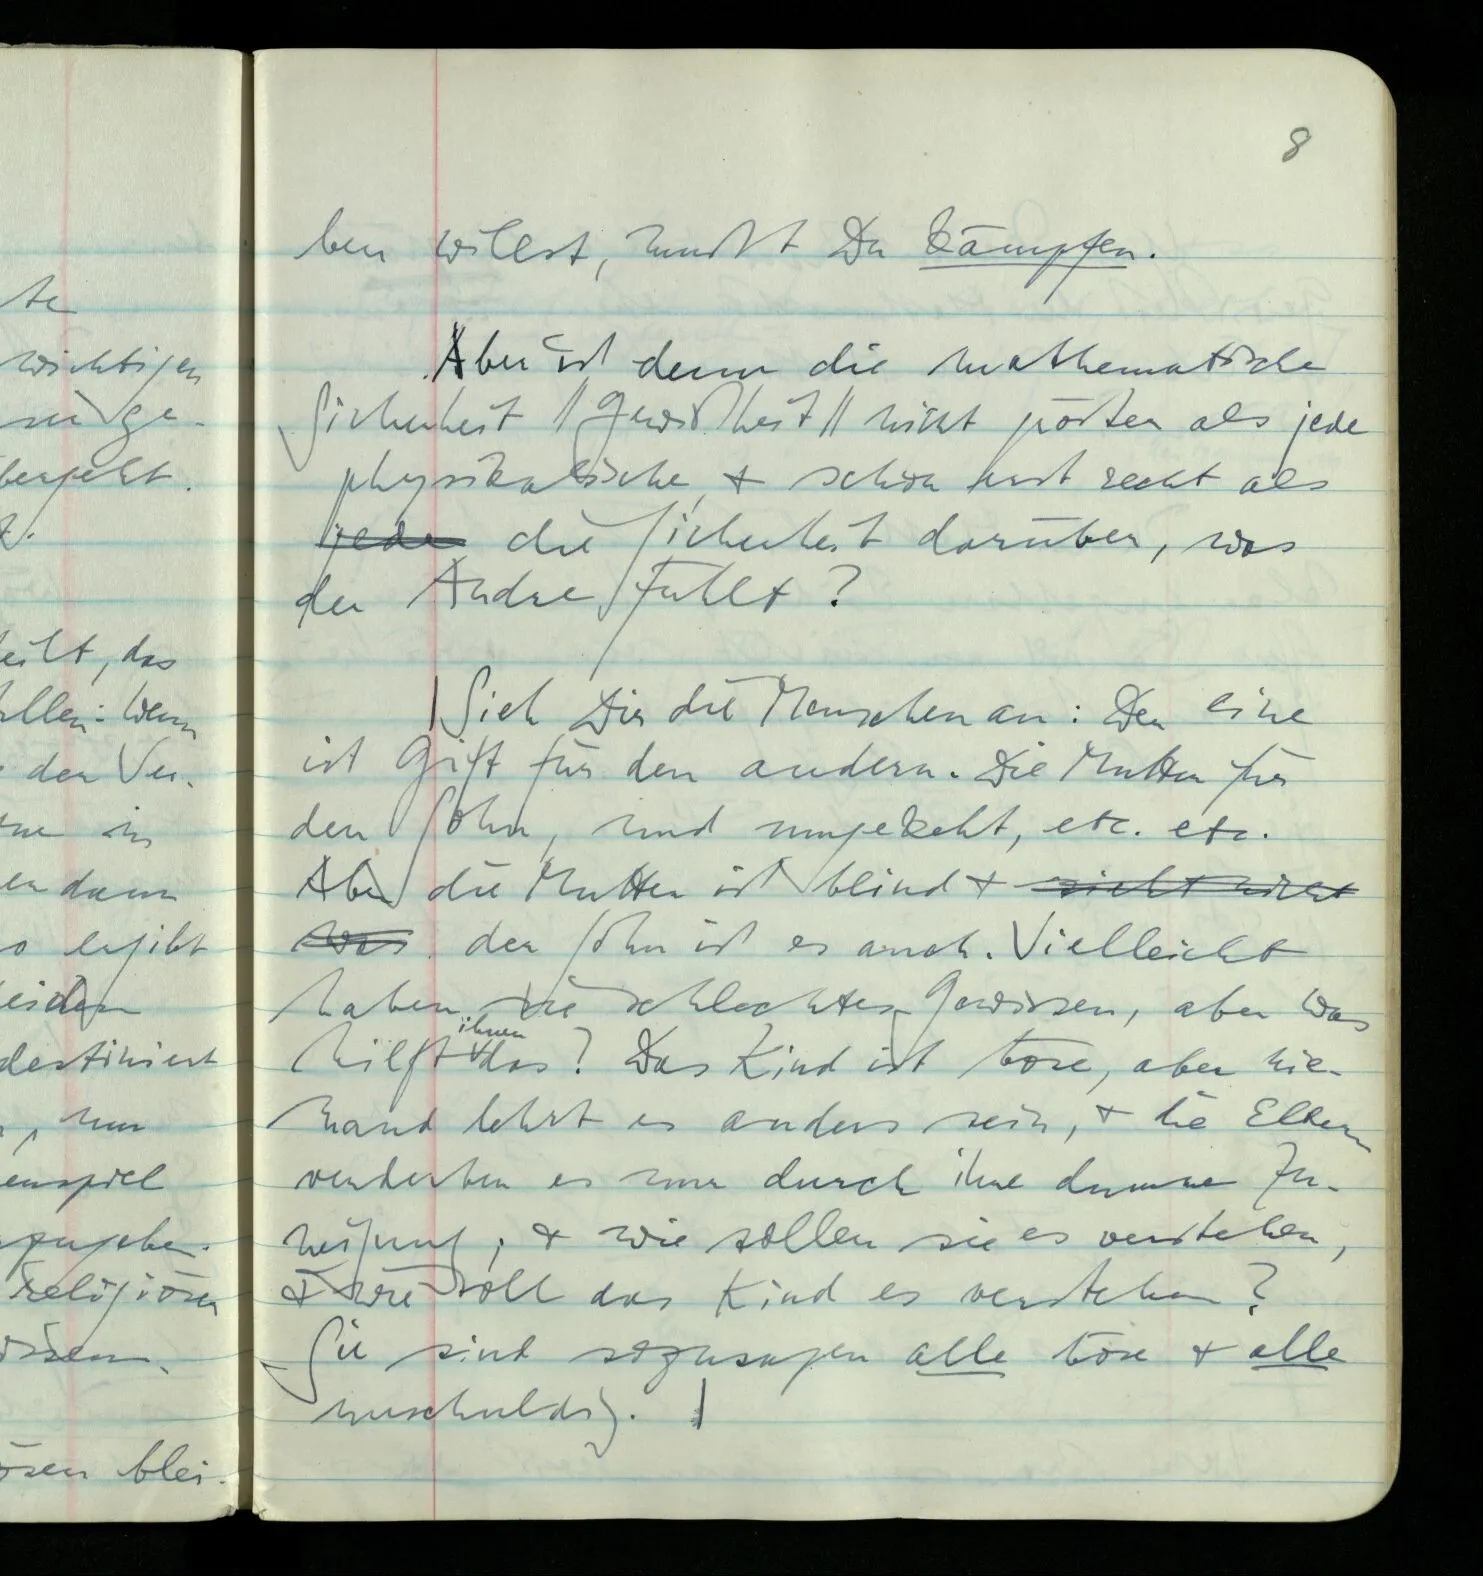 te
wichtigen
ge-
bergeht.
eilt, das
allen: Wenn
den Ver-
in
dann
so ergibt
beiden
destiniert
, nur
enspiel
zugeben.
religiösen
wissen.
ösen blei-
8
ben willst, mußt Du kämpfen.
Aber ist denn die mathematische
Sicherheit //Gewißheit// nicht größer als jede
physikalische, & schon erst recht als
jede die Sicherheit darüber, was
der Andre fühlt?
| Sieh Dir die Menschen an: Der eine
ist Gift für den andern. Die Mutter für
den Sohn, und umgekehrt, etc. etc.
Aber die Mutter ist blind & sieht nicht
was der Sohn ist es auch. Vielleicht
haben sie schlechtes Gewissen, aber was
hilft ihnen das? Das Kind ist böse, aber nie-
mand lehrt es anders sein, & die Eltern
verderben es nur durch ihre dumme Zu-
neigung; & wie sollen sie es verstehen,
& wie soll das Kind es verstehen?
Sie sind sozusagen alle böse & alle
unschuldig. |